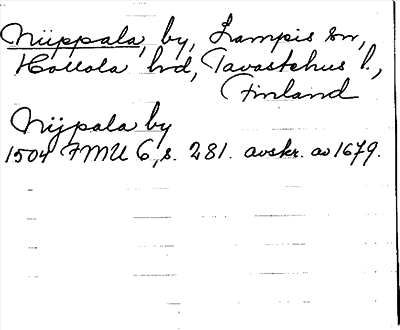 Niippala, by, Lampis sn,
Hollola hd, Tavastehus l.,
Finland
Nijpala by
1504 FMU 6, s. 281. avskr. av 1679.